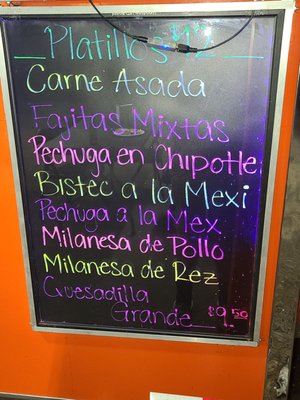 Platillos $12
Carne Asada
Fajitas Mixtas
Pechuga en Chipotle
Bistec a la Mexi
Pechuga a la Mex
Milanesa de Pollo
Milanesa de Rez
Quesadilla
Grande $9.50